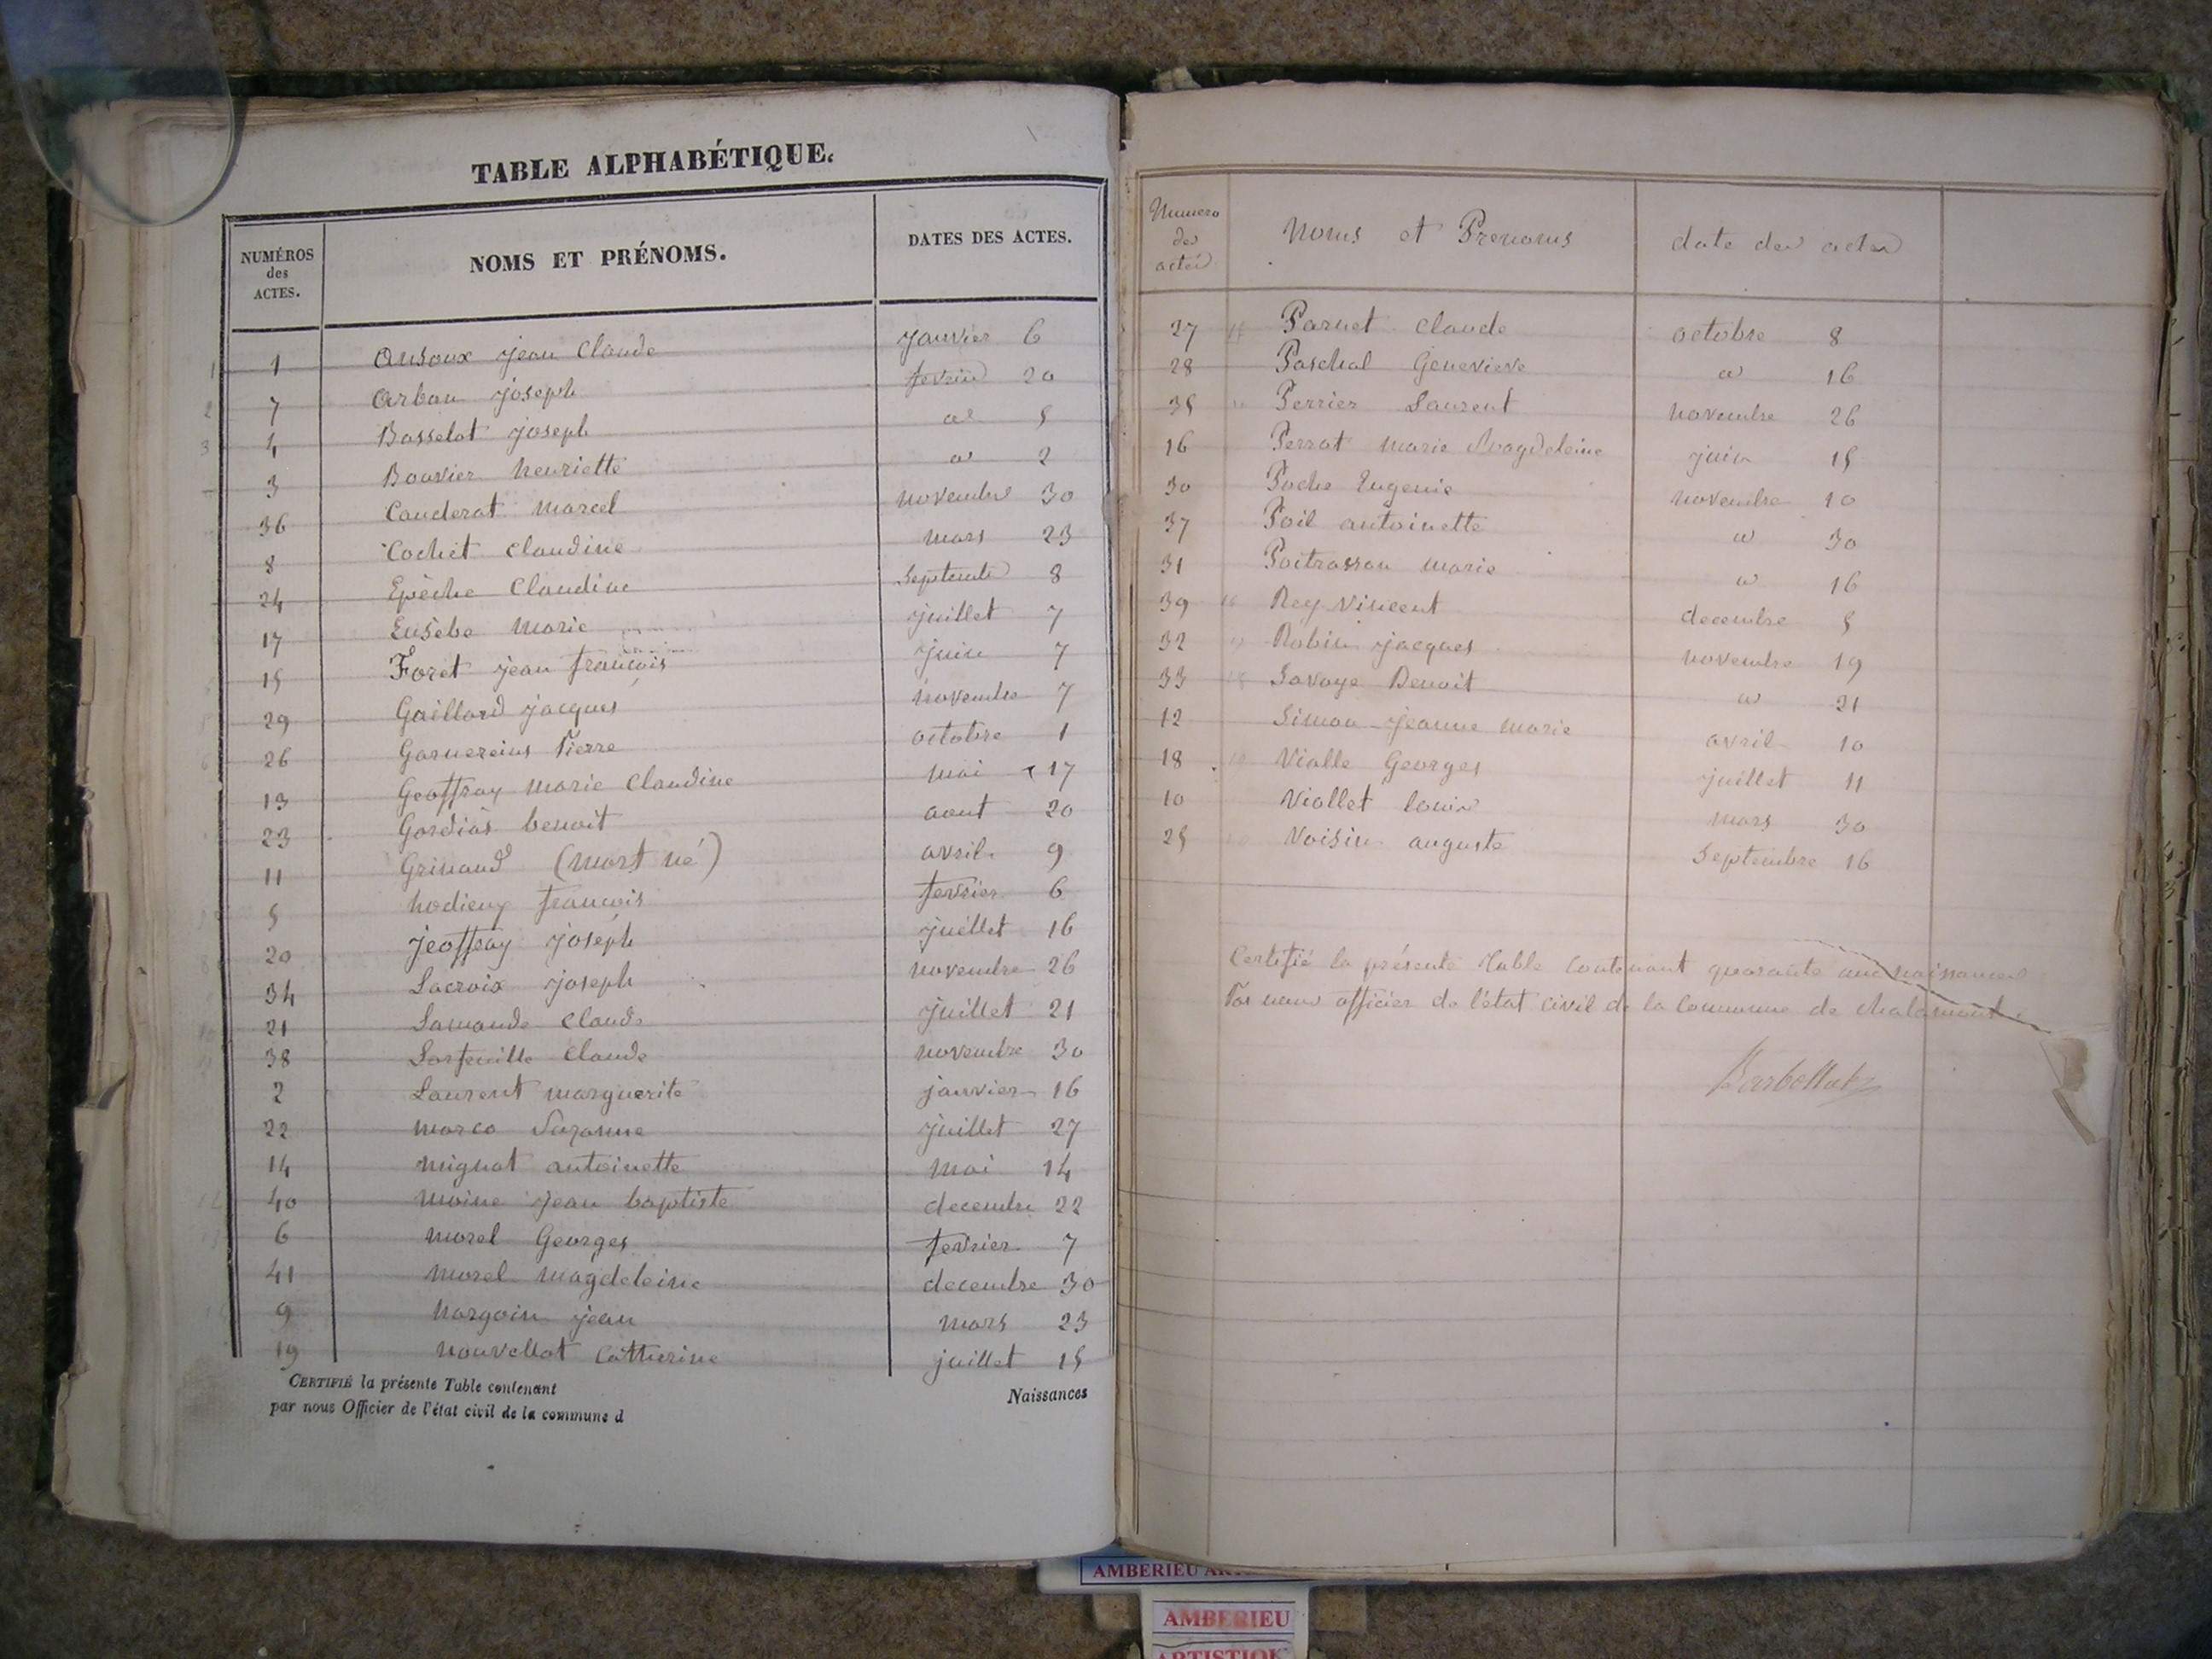 TABLE ALPHABÉTIQUE.
NUMÉROS des ACTES. NOMS ET PRÉNOMS. DATES DES ACTES.
1 Ansoux jean Claude janvier 6
7 Arban joseph fevrier 20
4 Basselat joseph d 5
3 Bouvier henriette d 2
36 Cauderat Marcel novembre 30
8 Cochet Claudine mars 23
24 Epèche Claudine Septembre 8
17 Eusèbe Marie juillet 7
15 Foret jean francois juin 7
29 Gaillard jacques novembre 7
26 Garnereins Pierre octobre 1
13 Geoffray Marie Claudine mai 17
23 Gordias benoit aout 20
11 Grinand (mort né) avril 9
5 hodieux francois fevrier 6
20 jeoffray joseph juillet 16
34 Lacroix joseph novembre 26
21 Lamande Claude juillet 21
38 Larfeuille Claude novembre 30
2 Laurent marguerite janvier 16
22 marco Suzanne juillet 27
14 mignat antoinette mai 14
40 moine jean baptiste decembre 22
6 morel Georges fevrier 7
41 morel magdeleine decembre 30
9 nargoin jean mars 23
19 nouvellat Catherine juillet 15
CERTIFIÉ la présente Table contenant Naissances
par nous Officier de l'état civil de la commune d
Numero des actes Noms et Prenoms date des actes
27 Parnet Claude octobre 8
28 Paschal Genevieve d 16
35 Perrier Laurent novembre 26
16 Perrat Marie Magdeleine juin 15
30 Poche Eugenie novembre 10
37 Poil antoinette d 30
31 Poitrasson marie d 16
39 Rey Vincent decembre 5
32 Robin jacques novembre 19
33 Savoye Benoit d 21
12 Simon jeanne marie avril 10
18 Vialle Georges juillet 11
10 Viallet louis mars 30
25 Voisin auguste Septembre 16
Certifié la présente Table Contenant quarante une naissances
Par nous officier de l'état civil de la Commune de chalamont.
AMBERIEU
AMBERIEU